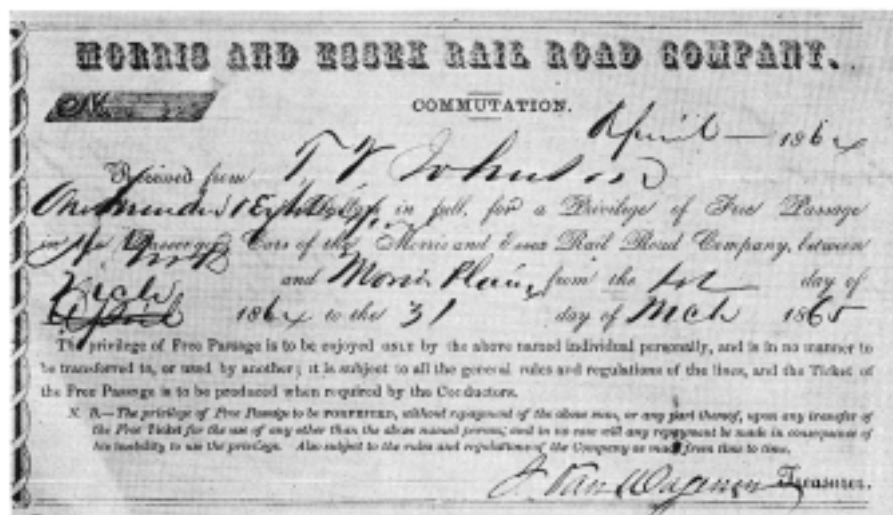 MORRIS AND ESSEX RAIL ROAD COMPANY.
COMMUTATION.
April 1864
Received from T V Johnson
One Hundred & Eighty in full, for a Privilege of Free Passage
in the Passenger Cars of the Morris and Essex Rail Road Company, between
and Morris Plains from the 1st day of
April 1864 to the 31 day of Mch 1865
The privilege of Free Passage is to be enjoyed ONLY by the above named individual personally, and is in no manner to
be transferred to, or used by another; it is subject to all the general rules and regulations of the lines, and the Ticket of
the Free Passage is to be produced when required by the Conductors.
N. B.—The privilege of Free Passage to be FORFEITED, without repayment of the above sum, or any part thereof, upon any transfer of
the Free Ticket for the use of any other than the above named person; and in no case will any repayment be made in consequence of
his inability to use the privilege. Also subject to the rules and regulations of the Company as made from time to time.
J. Van Wagenen Treasurer.